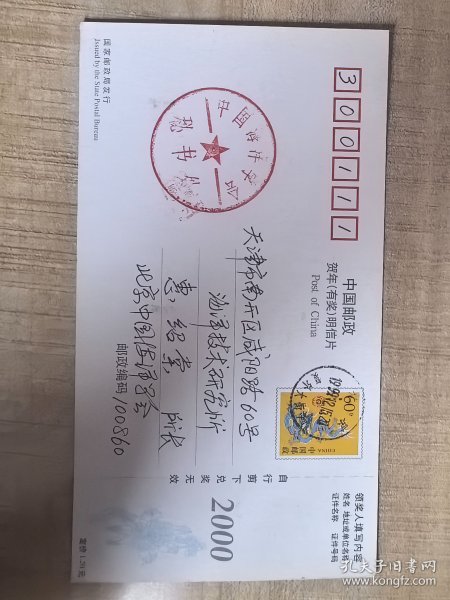 300111
中国邮政
贺年(有奖)明信片
Post of China
国家邮政局发行
Issued by the State Postal Bureau
中国海洋学会
秘书处
天津市南开区咸阳路60号
海洋技术研究所
惠绍棠 所长
北京中国海洋学会
邮政编码100860
60分
中国邮政
CHINA
自行剪下 兑奖无效
2000
领奖人填写内容
姓名 地址或单位名称
证件名称 证件号码
售价 1.20元
孔夫子旧书网
kongfz.com